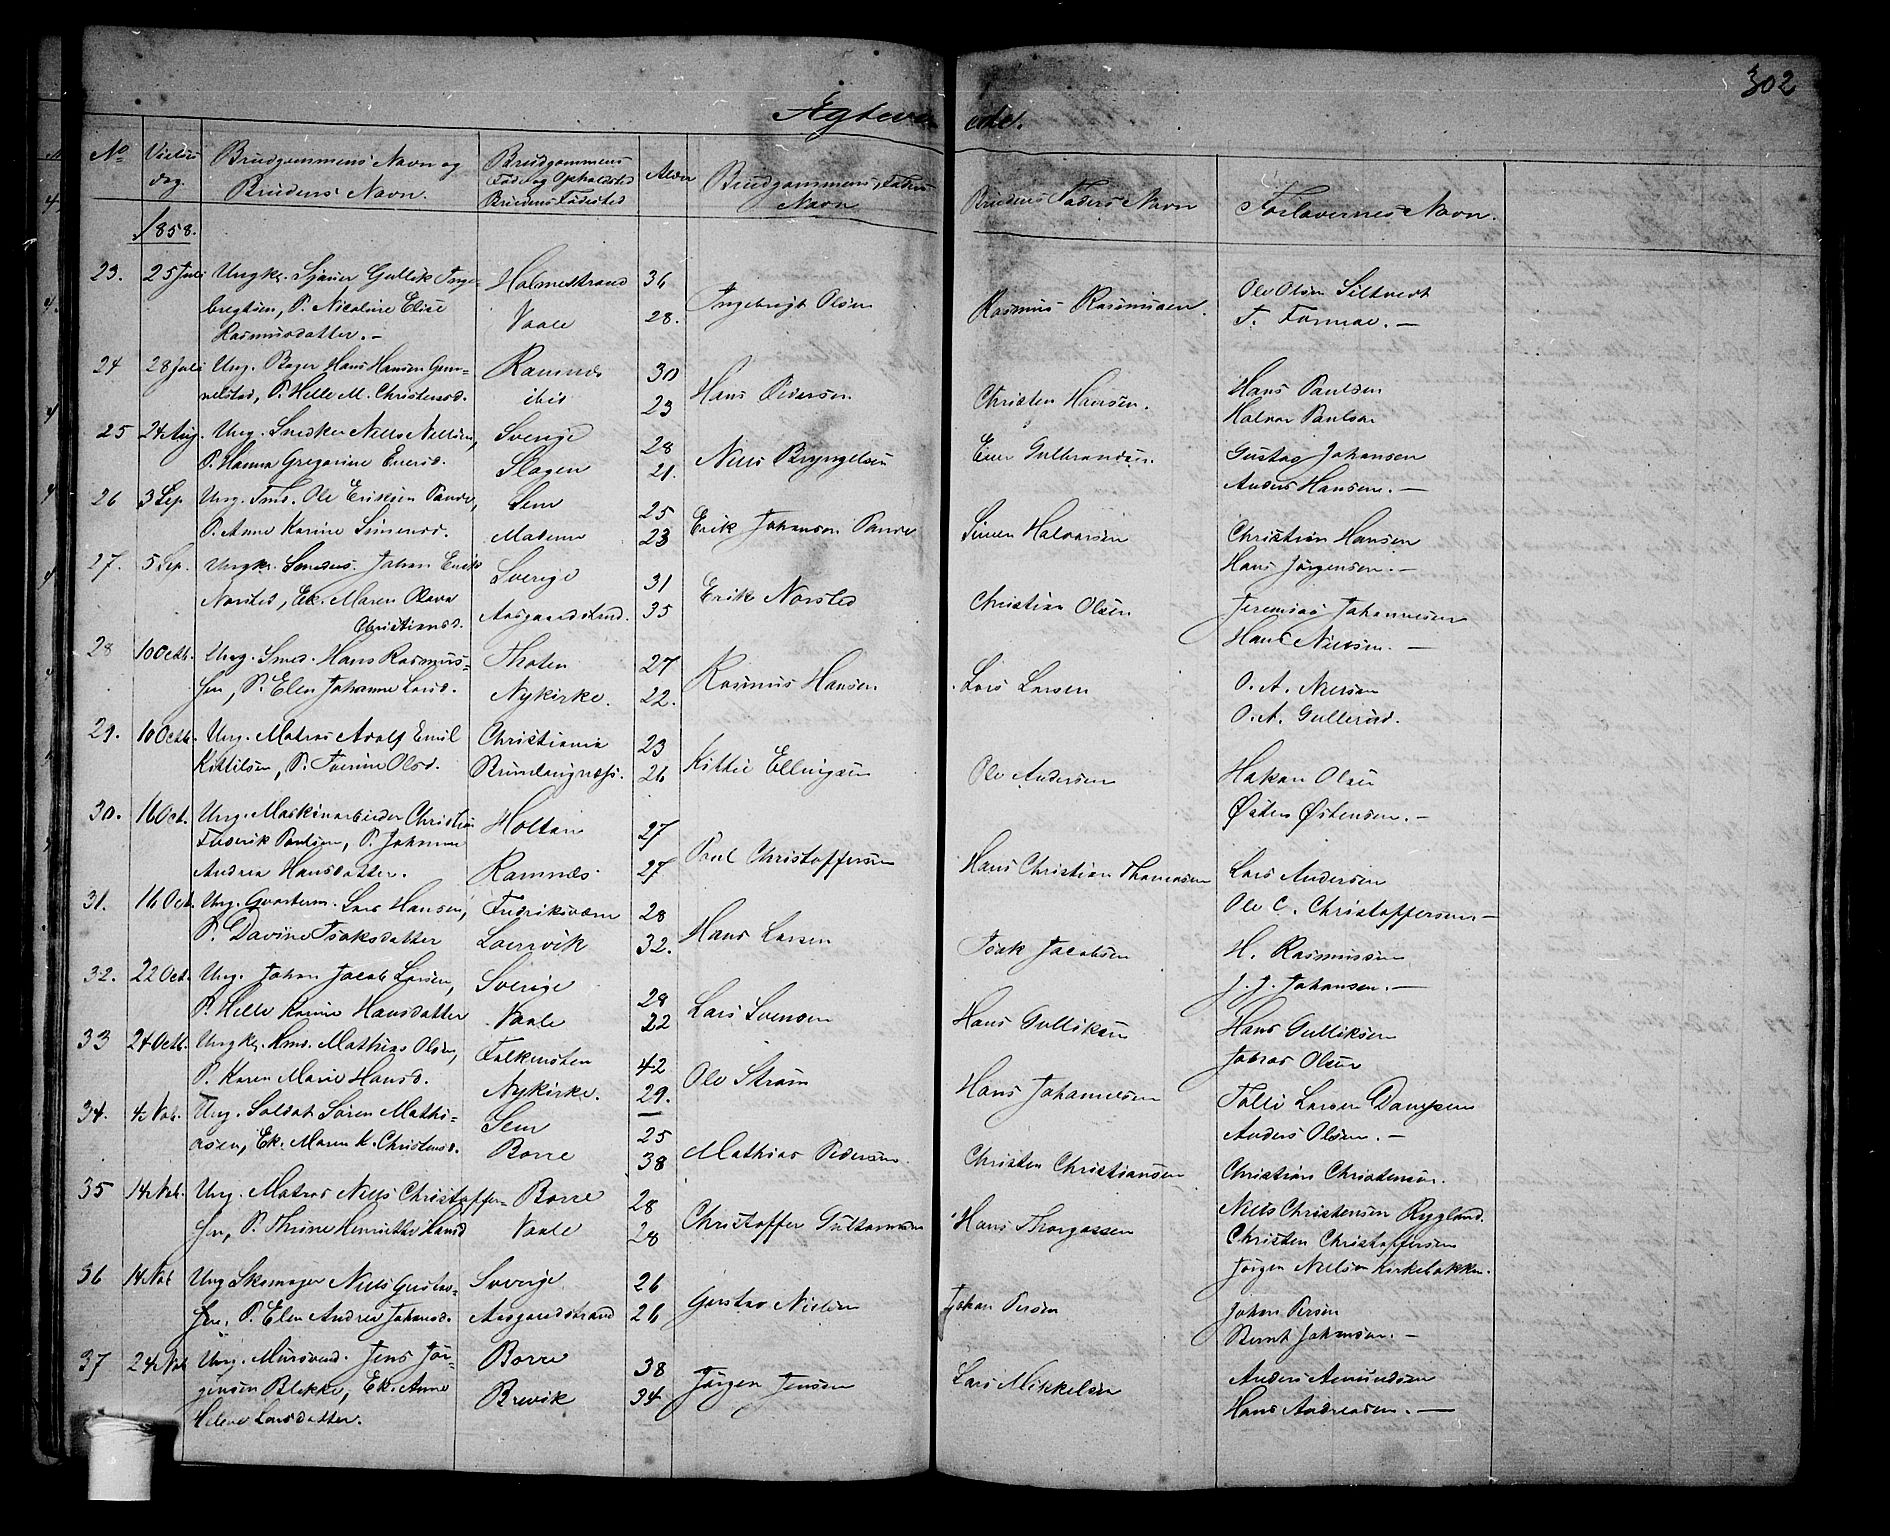 302
Ægtevi ede.
No Vielses dag. Brudgommens Navn og Brudens Navn. Brudgommens Føde og Opholdsted Brudens Fødested Alder Brudgommens Faders Navn Brudens Faders Navn Forlovernes Navn.
1858.
23. 25 Juli Ungk. Sjauer Gullik Inge- Holmestrand 36 Ingebregt Olsen Rasmus Rasmussen. Ole Olsen
bregtsen, P. Nicoline Elise Vaale 28. T. Formoe. —
Rasmusdatter. —
24 28 Juli Ung. Bager Hans Hansen Gun- Ramnæs 30 Hans Pedersen Christen Hansen. Hans Paulsen
nelstad, P. Helle M. Christensd. ibid 23 Halvor Paulsen
25 24 Aug. Ung. Snedker Niels Nielsen, Sverige 28 Niels Bryngelsen Ever Gulbrandsen. Gustav Johansen
P. Hanna Gregorine Eversd. Slagen 21. Anders Hansen. —
26 3 Sep. Ung. Tmd. Ole Eriksen Sem 25 Erik Johansen Simen Halvorsen Christian Hansen
P. Anne Karine Simensd. 23 Hans Jørgensen. —
27. 5 Sep. Ungk. Johan Erik Sverige 31 Erik Norsted Christian Olsen Jeremias Johannesen
Norsted, Ek. Maren Olava Aasgaardstrand. 35 Hans Nielsen. —
Christiansd.
28 10 Octb. Ung. Smed. Hans Rasmus- Thoten 27 Rasmus Hansen Lars Larsen O. A. Nielsen
sen, P. Elen Johanne Larsd. Nykirke. 22. O. A. Gullerud.
29. 10 Octb. Ung. Matros Adolf Emil Christiania 23 Kittil Ellingsen Ole Andersen Hakon Olsen
Kittilsen, P. Olsd. 26 Østen Østensen. —
30. 16 Oct. Ung. Maskinarbeider Christian Holtan 27 Poul Christoffersen Hans Christian Thomesen Lars Andersen
Frederik Poulsen, P. Johanne Ramnæs 27 Ole C. Christoffersen. —
Andrea Hansdatter.
31. 16 Oct. Ung. Qvarterm. Lars Hansen, Fredriksværn 28 Hans Larsen Isak Jacobsen H. Rasmussen
P. Davine Isaksdatter Laurvik 32. J. J. Johansen. —
32. 22 Oct. Ung. Johan Jacob Larsen, Sverige 29 Lars Svensen Hans Gulliksen Hans Gulliksen
P. Helle Karine Hansdatter Vaale 22 Olsen
33 24 Octb. Ungk. Hmd. Mathias Olsen, Falkensten 42 Ole Strøm Hans Johannesen Larsen
P. Karen Marie Hansd. Nykirke. 29. Anders Olsen. —
34. 4 Nob. Ung. Soldat Søren Mathi- Sem 25 Mathias Pedersen. Christen Christiansen Christian Christensen.
asen, Ek. Maren K. Christensd. Borre 38 Niels Christensen Rygland.
35 14 Nob. Ung. Matros Niels Christoffer- Borre 28 Christoffer Guttormsen Hans Thorgassen Christen Christoffersen
sen, P. Thrine Henriette Hansd Vaale 28 Jørgen Nielsen Kirkebakken.
36 14 Nob Ung Skomager Niels Gustav- Sverige 26 Gustav Nielsen Johan Persen Johan Persen
sen, P. Elen Andrea Johansd. Aasgaardstrand 26 Bernt Johansen. —
37 24 Nob Ung. Mursvend. Jens Jør- Borre 38 Jørgen Jensen Lars Mikkelsen Anders Amundsen
gensen Blekke, Ek. Anne Brevik 34 Hans Andreasen. —
Helene Larsdatter.